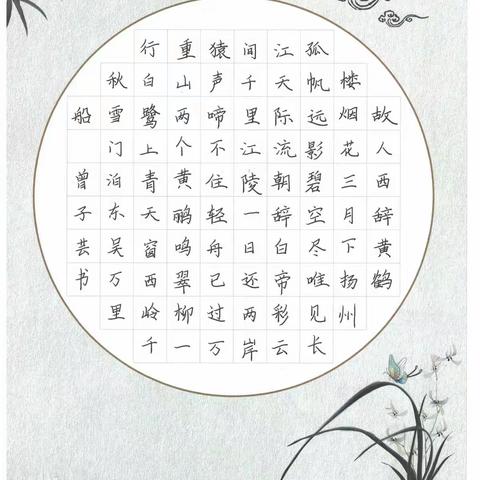 故人西辞黄鹤
楼烟花三月下扬州
孤帆远影碧空尽唯见长
江天际流朝辞白帝彩云
间千里江陵一日还两岸
猿声啼不住轻舟已过万
重山两个黄鹂鸣翠柳一
行白鹭上青天窗西岭千
秋雪门泊东吴万里
船 曾子芸书